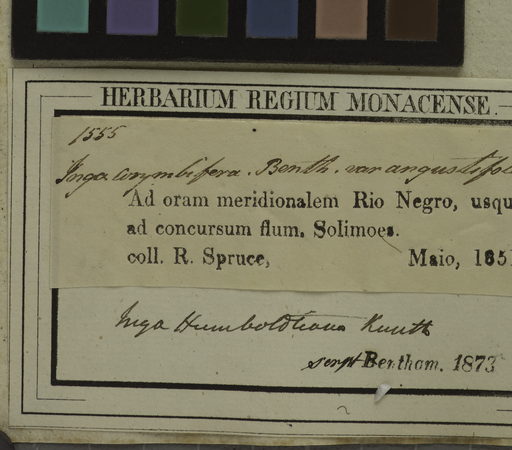 HERBARIUM REGIUM MONACENSE.
1555
Inga corymbifera. Benth. var angustifol
Ad oram meridionalem Rio Negro, usqu
ad concursum flum. Solimoes.
coll. R. Spruce, Maio, 1851
Inga Humboldtiana Kunth
script Bentham. 1873